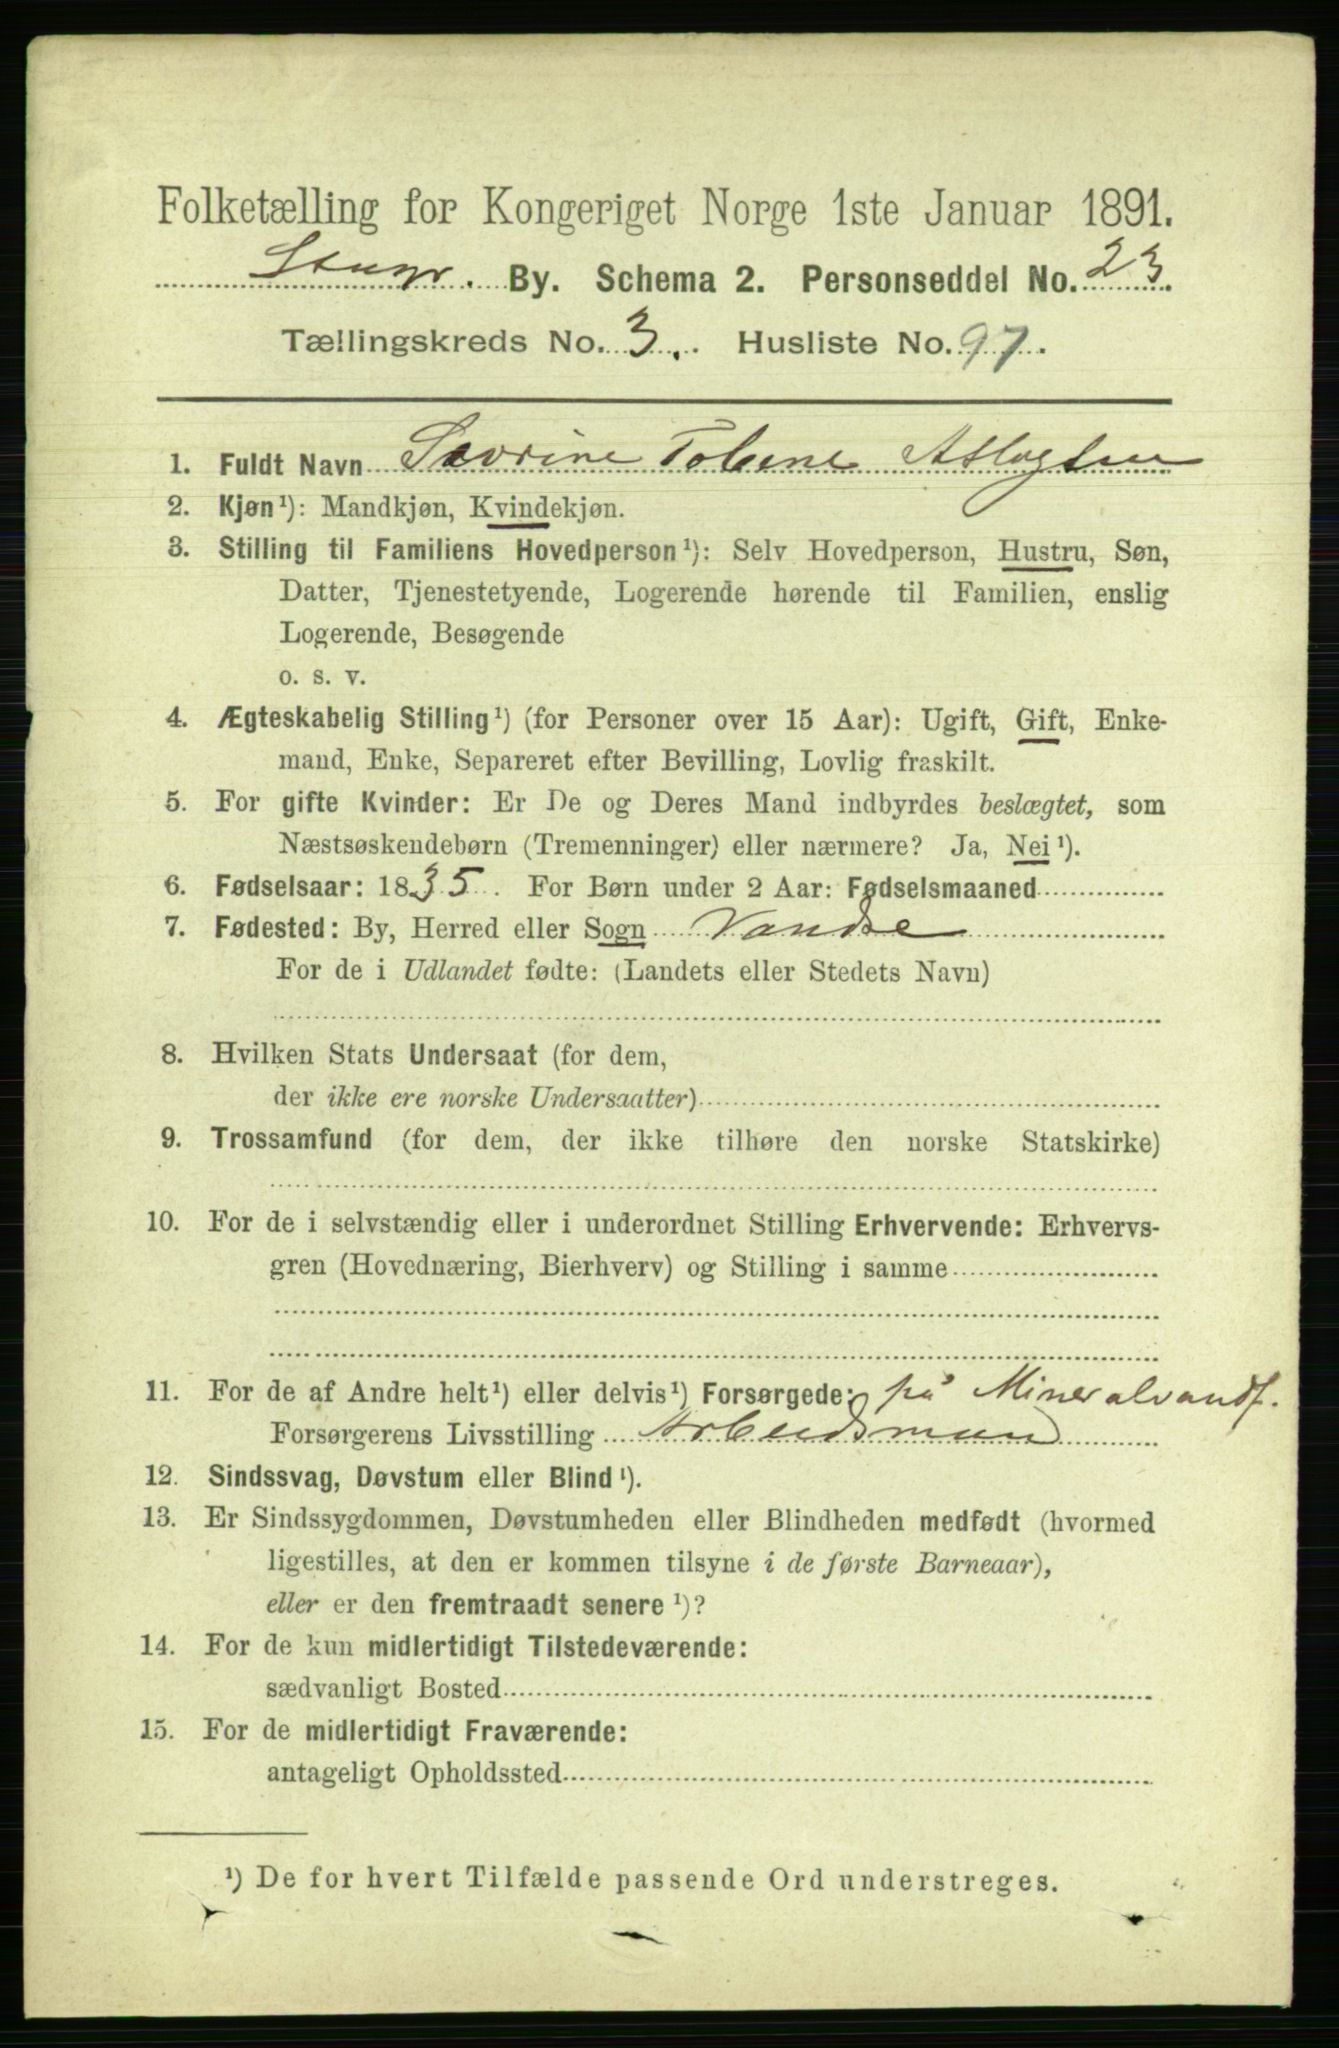 Folketælling for Kongeriget Norge 1ste Januar 1891.
By. Schema 2. Personseddel No. 23
Tællingskreds No. 3. Husliste No. 97.
1. Fuldt Navn Sevrine Tobine Aslagsen
2. Kjøn¹): Mandkjøn, Kvindekjøn.
3. Stilling til Familiens Hovedperson¹): Selv Hovedperson, Hustru, Søn,
Datter, Tjenestetyende, Logerende hørende til Familien, enslig
Logerende, Besøgende
o. s. v.
4. Ægteskabelig Stilling¹) (for Personer over 15 Aar): Ugift, Gift, Enke-
mand, Enke, Separeret efter Bevilling, Lovlig fraskilt.
5. For gifte Kvinder: Er De og Deres Mand indbyrdes beslægtet, som
Næstsøskendebørn (Tremenninger) eller nærmere? Ja, Nei¹).
6. Fødselsaar: 1835. For Børn under 2 Aar: Fødselsmaaned
7. Fødested: By, Herred eller Sogn Vandse
For de i Udlandet fødte: (Landets eller Stedets Navn)
8. Hvilken Stats Undersaat (for dem,
der ikke ere norske Undersaatter)
9. Trossamfund (for dem, der ikke tilhøre den norske Statskirke)
10. For de i selvstændig eller i underordnet Stilling Erhvervende: Erhvervs-
gren (Hovednæring, Bierhverv) og Stilling i samme
11. For de af Andre helt¹) eller delvis¹) Forsørgede: på Mineralvandf.
Forsørgerens Livsstilling Arbeidsmand
12. Sindssvag, Døvstum eller Blind¹).
13. Er Sindssygdommen, Døvstumheden eller Blindheden medfødt (hvormed
ligestilles, at den er kommen tilsyne i de første Barneaar),
eller er den fremtraadt senere¹)?
14. For de kun midlertidigt Tilstedeværende:
sædvanligt Bosted
15. For de midlertidigt Fraværende:
antageligt Opholdssted
¹) De for hvert Tilfælde passende Ord understreges.